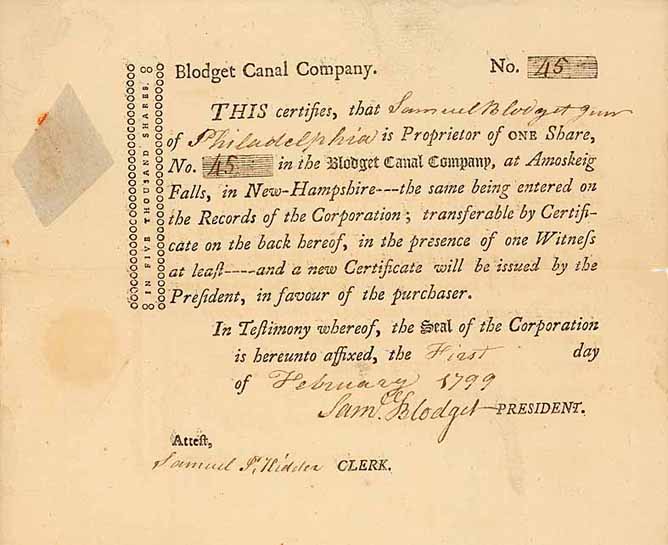 Blodget Canal Company. No. 45
THIS certifies, that Samuel Blodget Junr
of Philadelphia is Proprietor of ONE Share,
No. 45 in the Blodget Canal Company, at Amoskeig
Falls, in New-Hampshire---the same being entered on
the Records of the Corporation; transferable by Certifi-
cate on the back hereof, in the presence of one Witneſs
at leaſt----and a new Certificate will be iſſued by the
Preſident, in favour of the purchaſer.
In Teſtimony whereof, the Seal of the Corporation
is hereunto affixed, the First day
of February 1799
Saml. Blodget PRESIDENT.
Atteſt,
Samuel P. Kidder CLERK.
8 IN FIVE THOUSAND SHARES. 8